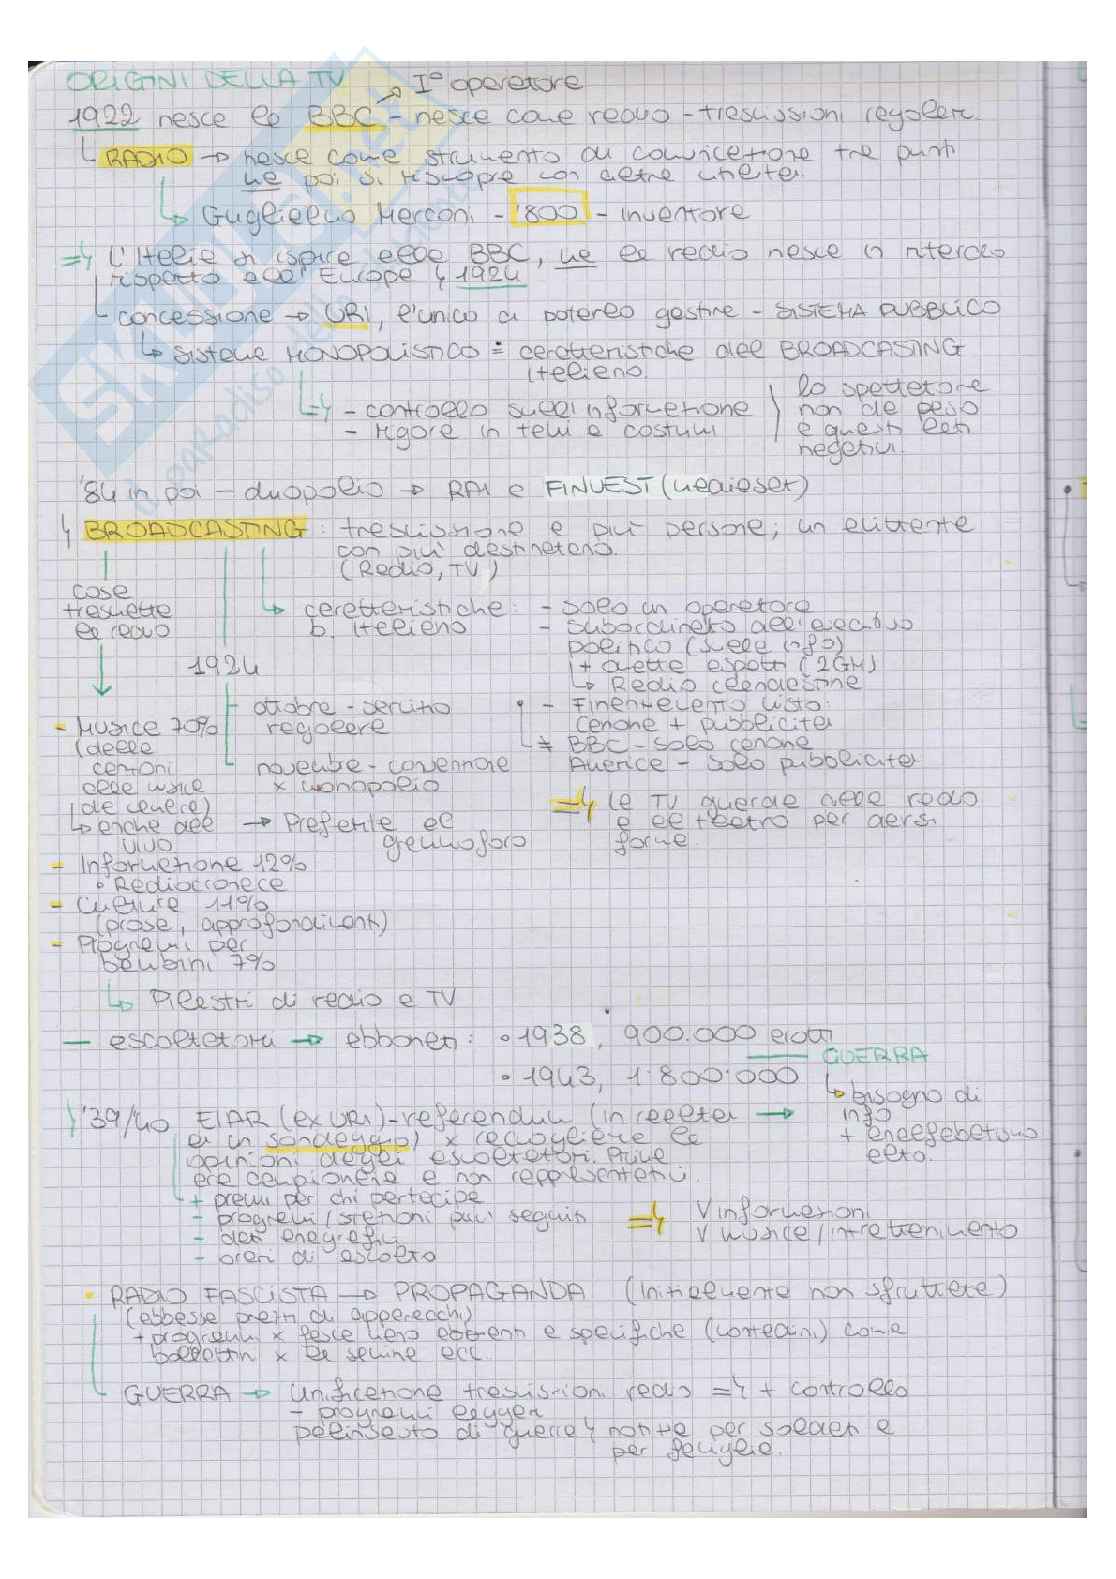 ORIGINI DELLA TV
1922 nasce la BBC → I° operatore - nasce come radio - trasmissioni regolari
↳ RADIO → nasce come strumento di comunicazione tra punti
ma poi si riscopre con altre finalità
↳ Guglielmo Marconi - '800 - inventore
⇒ L'Italia si ispira alla BBC, ma la radio nasce in ritardo
rispetto all'Europa ↳ 1924
concessione → URI, l'unico a poterlo gestire - SISTEMA PUBBLICO
↳ sistema MONOPOLISTICO = caratteristiche del BROADCASTING
italiano.
- controllo sull'informazione
- rigore in temi e costumi
lo spettatore
non dà peso
a questi lati
negativi.
'84 in poi - duopolio → RAI e FINVEST (mediaset)
↳ BROADCASTING: trasmissione a più persone; un emittente
con più destinatari.
(Radio, TV)
cosa
trasmette
la radio
↳ caratteristiche:
b. italiano
- solo un operatore
- subordinato all'esecutivo
politico (sulle info)
+ dette esportr (2GM)
↳ Radio clandestine
- Finanziamento misto:
Canone + pubblicità
≠ BBC - solo canone
America - solo pubblicità
1924
ottobre - servizio
regolare
novembre - convenzione
x monopolio
⇒ la TV guarda alla radio
e al teatro per darsi
forma.
- Musica 70%
(dalle
canzoni
alla musica
da camera)
↳ anche dal → Preferite al
vivo grammofono
- Informazione 12%
• Radiocronaca
- Cultura 11%
(prosa, approfondimenti)
- Programmi per
bambini 7%
↳ Pilastri di radio e TV
- ascoltatori → abbonati: • 1938, 900.000
• 1943, 1.800.000
GUERRA
↳ bisogno di
info
+ analfabetismo
alto.
'39/40 EIAR (ex URI) - referendum (in realtà
è un sondaggio) x raccogliere le
opinioni degli ascoltatori. Prima
era campionaria e non rappresentativa.
+ premi per chi partecipa
- programmi/stazioni più seguiti
- dati anagrafici
- orari di ascolto
⇒ V informazioni
V musica/intrattenimento
• RADIO FASCISTA → PROPAGANDA (Inizialmente non sfruttata)
(abbassa prezzi di apparecchi)
+ programmi x fasce meno abbienti e specifiche (contadini) come
bollettini x la semina ecc.
GUERRA → unificazione trasmissioni radio ⇒ + controllo
- programmi leggeri
palinsesto di guerra ↳ notizie per soldati e
per famiglie.